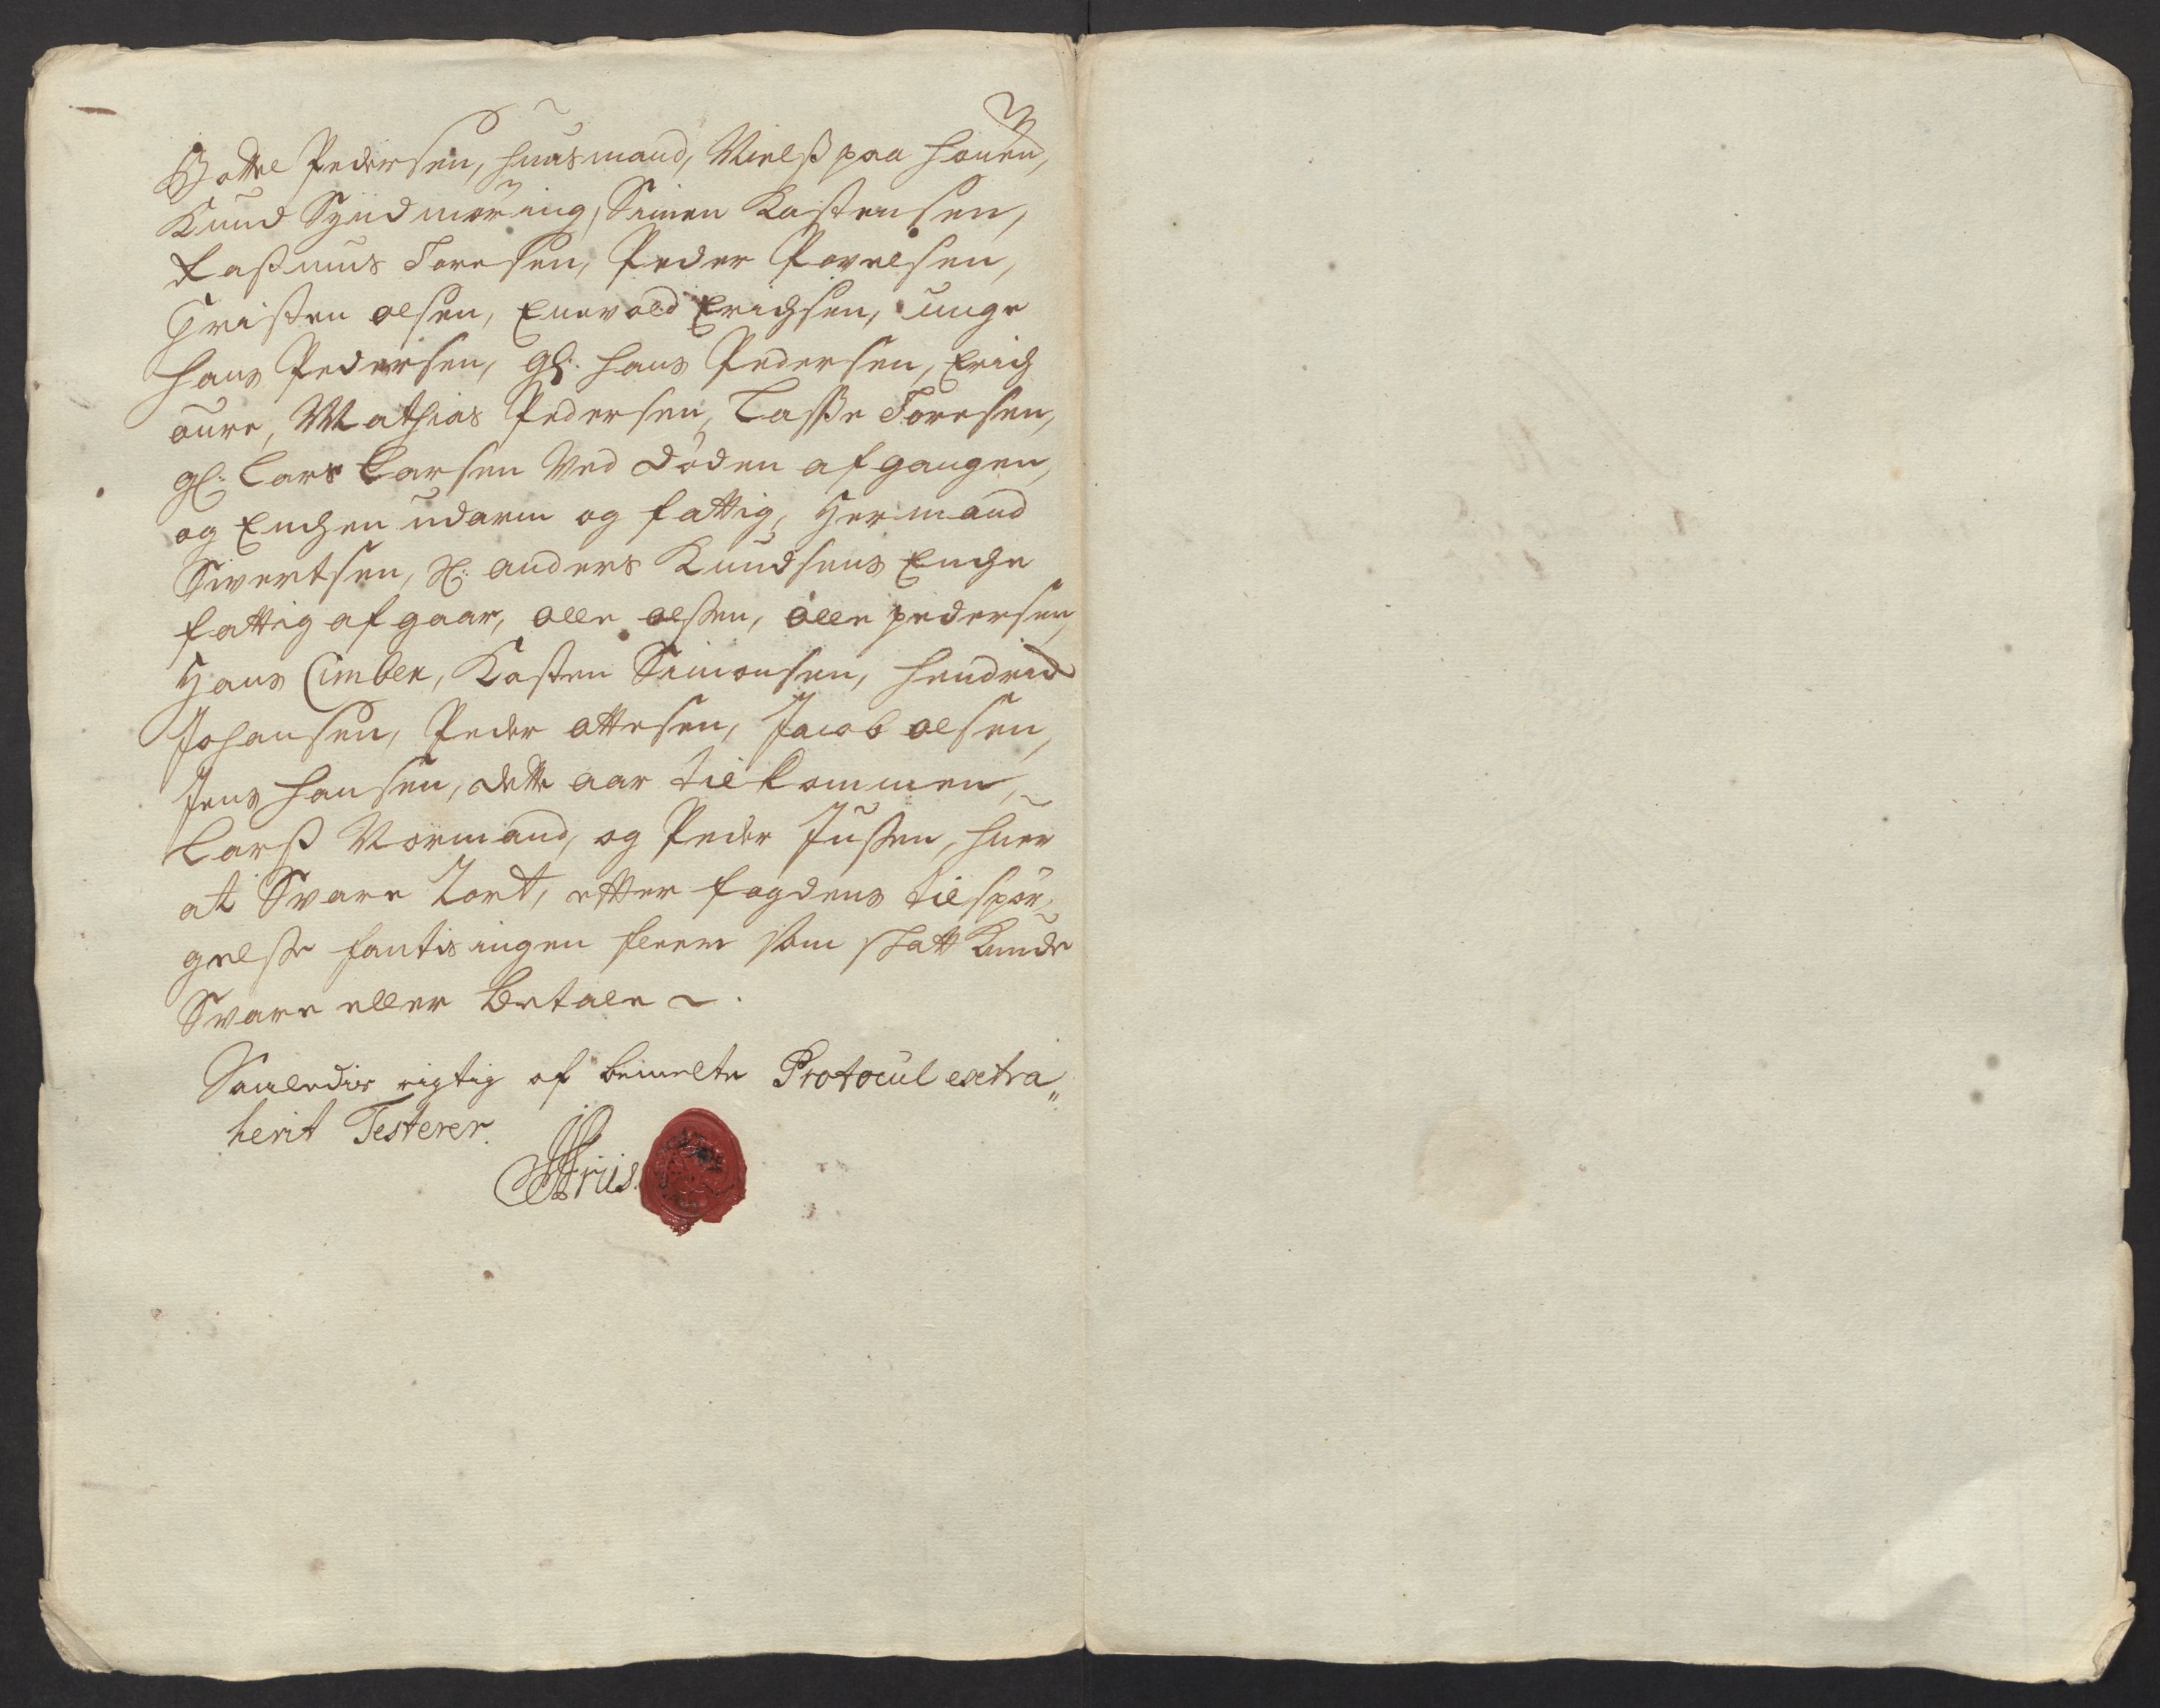 Bottel Pedersen, huusmand, Nielß paa houen,
Knud Syndmøring, Simen Kastensen,
Raßmus Toresen, Peder Povelsen,
Christen olsen, Enevold Erichsen, unge
Hans Pedersen, gl: Hans Pedersen, Erich
aure, Mathias Pedersen, Lasse Toresen,
gl: Lars Larsen ved døden afgangen,
og Enchen udarm og fattig, Hermand
Sivertsen, Sl: anders Knudsens Enche
fattig afgaar, olle olssen, olle pedersen,
Hans Cimber, Kasten Simonsen, Hendrich
Johansen, Peder ottesen, Jacob olsen,
Jens Hansen, dette aar tilkommen,
Larß Normand, og Peder Jussen, huer
at Svare 1 ort, etter fogdens tilspør,
gelsse fantis ingen fleere som skatt kunde
Svare eller betale ~.
Saaledis rigtig af bemelte Protocul extra,,
herit Testerer.
Friis.